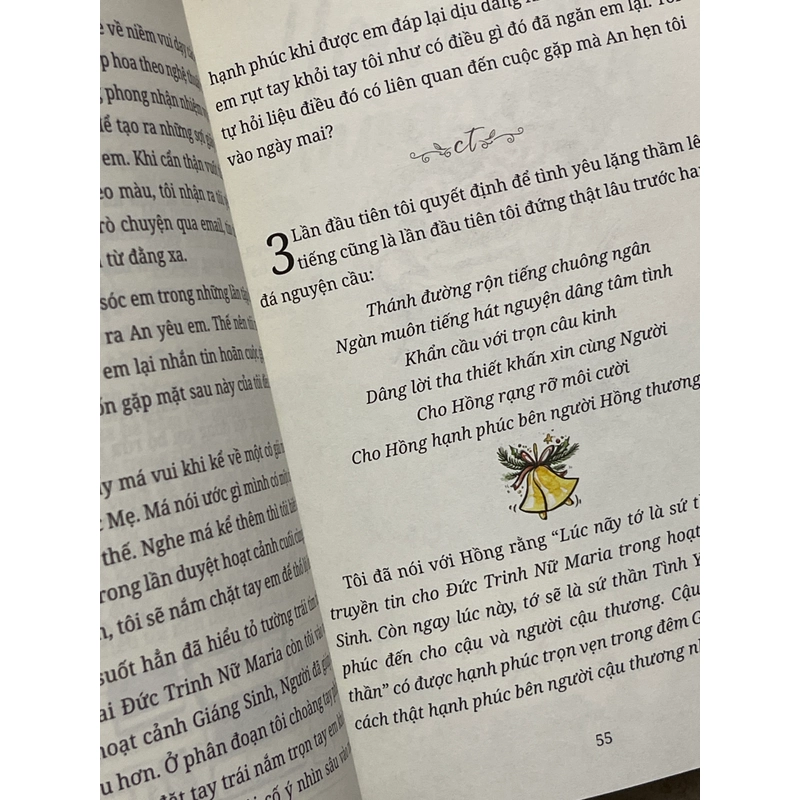 về niềm vui dạy
hoa theo nghệ
phong nhận nhiệm
tạo ra những sợi
em. Khi cẩn thận
màu, tôi nhận ra
chuyện qua email,
từ đằng xa.
sóc em trong những lần
ra An yêu em. Thế nên
em lại nhắn tin hoãn cuộc
gặp mặt sau này của tôi
má vui khi kể về một cô
Mẹ. Má nói ước gì mình có
thế. Nghe má kể thêm thì tôi
trong lần duyệt hoạt cảnh cuối
tôi sẽ nắm chặt tay em để
suốt hẳn đã hiểu tỏ tường trái
Đức Trinh Nữ Maria còn tôi
hoạt cảnh Giáng Sinh, Người đã
hơn. Ở phân đoạn tôi choàng tay
đặt tay trái nắm trọn tay em
cố ý nhìn sâu vào
hạnh phúc khi được em đáp lại dịu dàng
em rụt tay khỏi tay tôi như có điều gì đó đã ngăn em lại.
tự hỏi liệu điều đó có liên quan đến cuộc gặp mà An hẹn tôi
vào ngày mai?
ct
3 Lần đầu tiên tôi quyết định để tình yêu lặng thầm lên
tiếng cũng là lần đầu tiên tôi đứng thật lâu trước
đá nguyện cầu:
Thánh đường rộn tiếng chuông ngân
Ngàn muôn tiếng hát nguyện dâng tâm tình
Khẩn cầu với trọn câu kinh
Dâng lời tha thiết khấn xin cùng Người
Cho Hồng rạng rỡ môi cười
Cho Hồng hạnh phúc bên người Hồng thương
Tôi đã nói với Hồng rằng “Lúc nãy tớ là sứ
truyền tin cho Đức Trinh Nữ Maria trong hoạt
Sinh. Còn ngay lúc này, tớ sẽ là sứ thần Tình
phúc đến cho cậu và người cậu thương. Cậu
thần” có được hạnh phúc trọn vẹn trong đêm
cách thật hạnh phúc bên người cậu thương
55